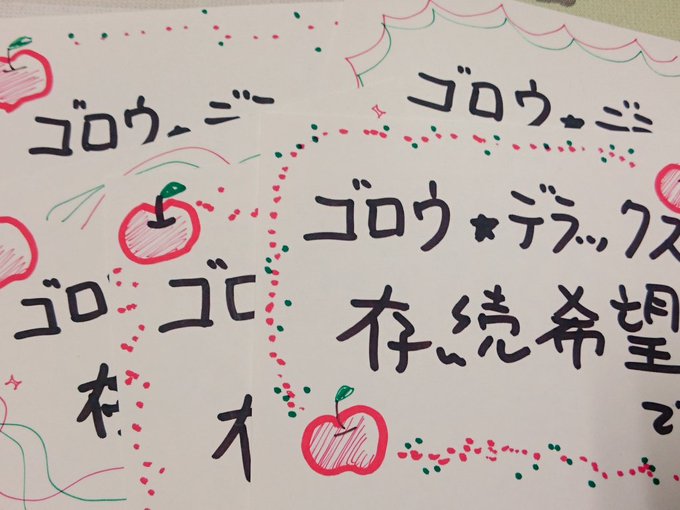 ゴロウ
ゴロウ
ゴロウ★デラックス
存続希望
で
ゴロ
存
ゴロ